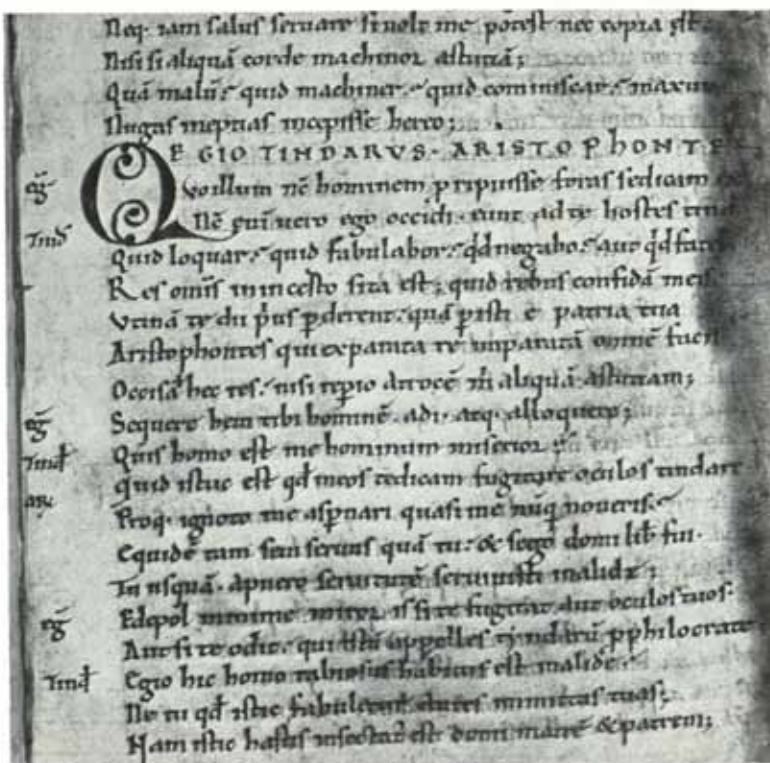 Neq. iam salus seruare si uolt me potest nec copia est.
Nisi si aliquā corde machinor astutiā;
Quā malū? quid machiner? quid cominiscar? maxum
Nugas ineptas incepisse hereo;
EGIO TINDARVS. ARISTOPHONTE
eḡ Quo illum nē hominem pripuisse foras se dicam
Tind Nē enīuero ego occidi. eunt ad te hostes tind
Quid loquar? quid fabulabor? qđ negabo? aut qđ fatebor
Res omīs in incerto sita est; quid rebus confidā meis
Vtinā te dii prius pderent. quā pisti e patria tua
Aristophontes qui ex parata re imparatā omnē facis
Occisa hec res. nisi repio atrocē m̄ aliquā astutiam;
eḡ Sequere hem tibi hominē. adi. atq. alloquere;
Tind Quis homo est me hominum miserior
ar quid istuc est qđ meos te dicam fugitare oculos tindare
Proq. ignoto me aspnari quasi me nūq noueris?
Equidē tam sum seruus quā tu. & si ego domi liƀ fui.
Tu usquā. a puero seruitutē seruiuisti in alide;
eḡ Edepol minime miror si te fugitat aut oculos tuos.
Aut si te odit. qui istū appelles tyndarū p philocrate
Tind Egio hic homo rabiosus habitus est in alide.
Ne tu qđ istic fabuletur aures inmittas tuas;
Nam istic hastis insectatus est domi matrē & patrem;